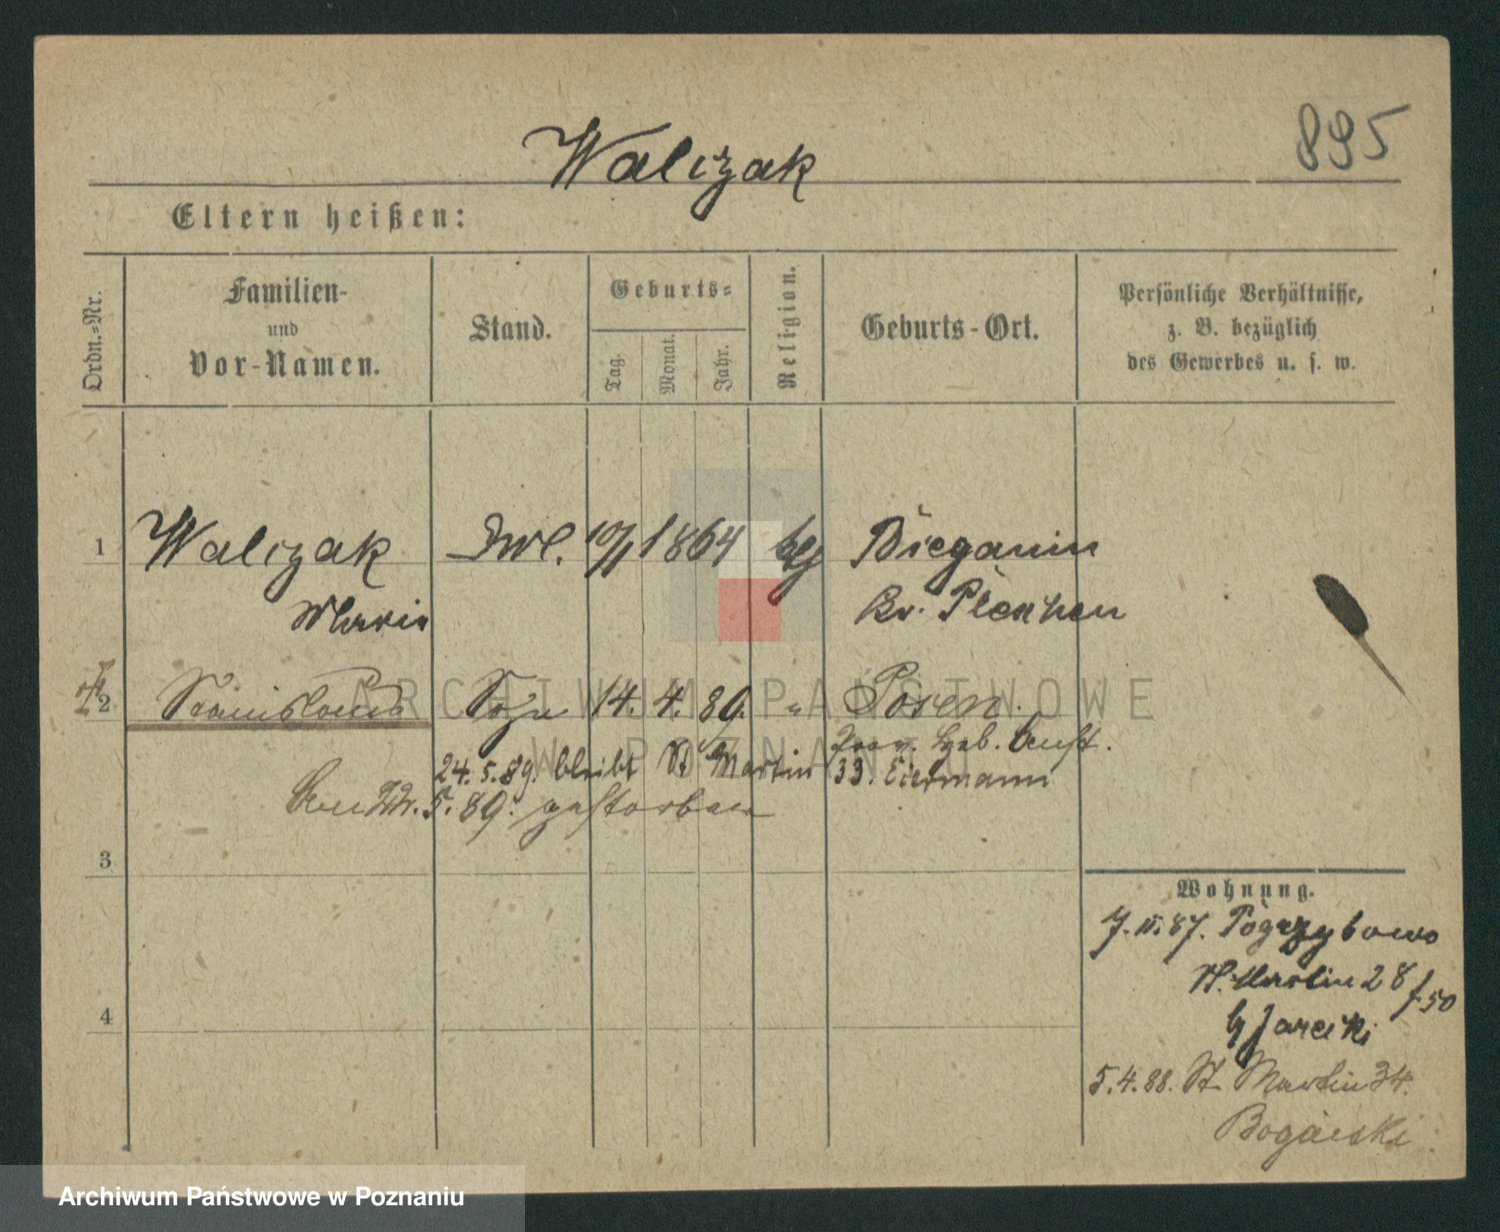 895
Walczak
Eltern heißen:
Ordn.-Nr.
Familien-
und
Vor-Namen.
Stand.
Geburts-
Tag.
Monat.
Jahr.
Religion.
Geburts-Ort.
Persönliche Verhältnisse,
z. B. bezüglich
des Gewerbes u. s. w.
1
Walczak
Marie
10/1 1864
Bieganin
Kr. Pleschen
2
Stanislaus
Sohn
14. 4. 89.
"
Posen.
Prov. Heb. Anst.
24. 5. 89. bleibt St Martin 33. Eiermann
5. 89. gestorben
3
4
Wohnung.
87. Pogrzybowo
St. Martin 28
f 50
b Jarecki
5. 4. 88. St Martin 34.
ARCHIWUM PAŃSTWOWE
W POZNANIU
Archiwum Państwowe w Poznaniu